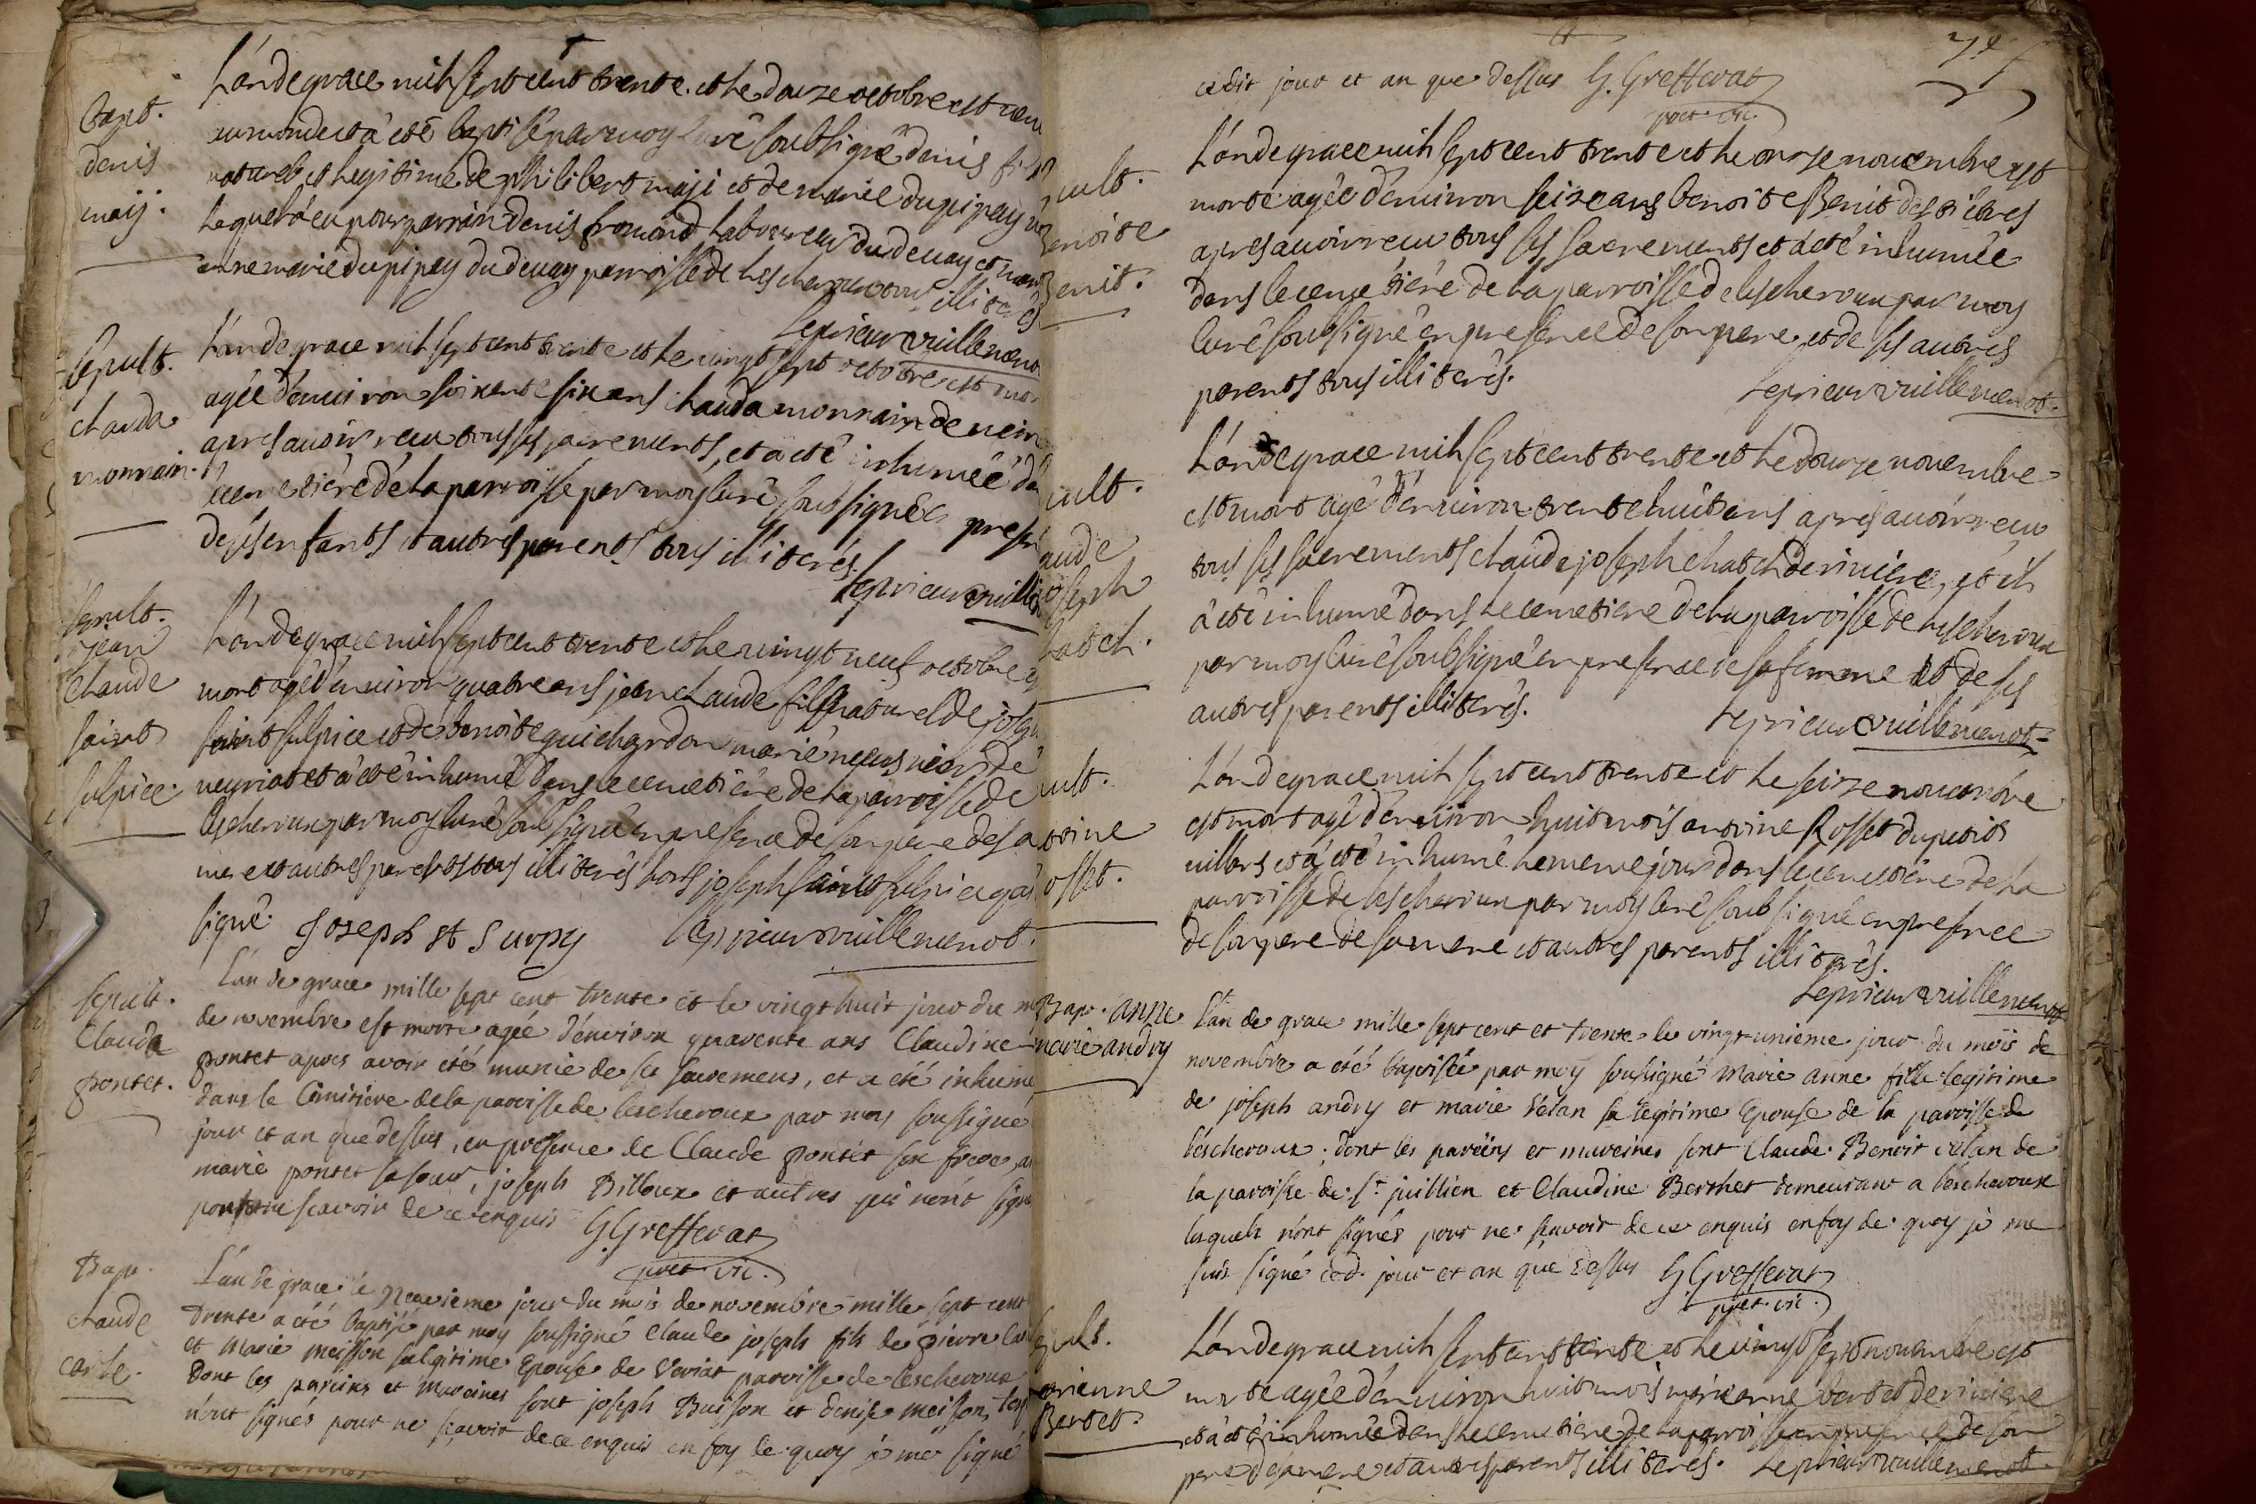 bapt.
denis
maij.
L'an de grace mil sept cent trente et le douze octobre est venu
au monde et a eté baptisé par moy curé soubsigné denis fils
naturel et legitime de philibert maji et de marie dupipay
lequel a eu pour parrain denis fromond laboureur du devay et
marie dupipay du devay parroisse de lescheroux tous illiterés
Leprieur vuillemenot
sepult.
clauda
monnain.
L'an de grace mil sept cent trente et le vingt sept octobre est
agée d'environ soixante six ans clauda monnain de
apres avoir receu tous ses sacrements, et a eté inhumée
cemetiere de la parroisse par moy curé soussigné
de ses enfants et autres parents tous illiterés.
Leprieur
sepult.
jean
claude
saint
sulpice.
L'an de grace mil sept cent trente et le vingt neuf octobre
mort agé d'environ quatre ans jean claude fils naturel de
saint sulpice et de benoite guichardon mariés
neyriat et a eté inhumé dans le cemetiere de la parroisse de
lescheroux par moy curé soubsigné en presence de son pere de sa
et autres parents tous illiterés hors joseph saint sulpice
signé. Joseph st surpy Leprieur vuillemenot.
sepult.
Clauda
pontet.
L'an de grace mille sept cent trente et le vingt huit jour du
de novembre est morte agée d'environ quarente ans Claudine
pontet apres avoir été munie de ses sacremens, et a été inhumé
dans le Cimitiére de la paroisse de lescheroux par moy soussigné
jour et an que dessus, en presence de Claude pontet son frere,
marie pontet sa soeur, joseph Billoux et autres qui n'ont signé
pour ne scavoir de ce enquis G. Grefferat
pret. vic.
Bap.
claude
carle.
L'an de grace le neuvieme jour du mois de novembre mille sept cent
trente a été baptisé par moy soussigné Claude joseph fils de pierre
et Marie meisson sa legitime Epouse de Veriat paroisse de lescheroux
dont les pareins et mareines sont joseph Buison et denise meison,
n'ont signés pour ne sçavoir de ce enquis en foy de quoy je me signé
cedit jour et an que dessus G. Grefferat
pret. vic.
ult.
enoite
enit.
L'an de grace mil sept cent trente et le onze novembre est
morte agée d'environ seize ans benoite Benit
apres avoir receu tous ses sacrements et a eté inhumée
dans le cemetiere de la parroisse de lescheroux par moy
curé soubsigné en presence de son pere et de ses autres
parents tous illiterés.
Leprieur vuillemenot.
ult.
aude
oseph
hatel.
L'an de grace mil sept cent trente et le douze novembre
est mort agé d'environ trente huit ans apres avoir receu
tous ses sacrements claude joseph chatel de riviere, et il
a eté inhumé dans le cemetiere de la parroisse de lescheroux
par moy curé soubsigné en presence de sa femme et de ses
autres parents illiterés.
Leprieur vuillemenot.
ult.
toine
osset.
L'an de grace mil sept cent trente et le seize novembre
est mort agé d'environ huit mois antoine Rosset du petit
villars et a eté inhumé le meme jour dans le cemetiere de la
parroisse de lescheroux par moy curé soubsigné en presence
de son pere de sa mere et autres parents illiterés.
Leprieur vuillemenot
Bap. anne
marie andry
L'an de grace mille sept cent et trente le vingt-unieme jour du mois de
novembre a été baptisée par moy soussigné Marie anne fille legitime
de joseph andry et marie velan sa legitime Epouse de la paroisse de
lescheroux; dont les pareins et mareines sont Claude Benoit velan de
la paroisse de St juillien et Claudine Berthet demeurant a lescheroux
lesquels n'ont signés pour ne sçavoir de ce enquis en foy de quoy je me
suis signé ced. jour et an que dessus G. Grefferat
pret. vic.
pult.
arienne
Bertet.
L'an de grace mil sept cent trente et le vingt sept novembre est
morte agée d'environ huit mois marienne bertet de riviere
et a eté inhumée dans le cemetiere de la parroisse en presence de son
pere de sa mere et autres parents illiterés. Leprieur vuillemenot.